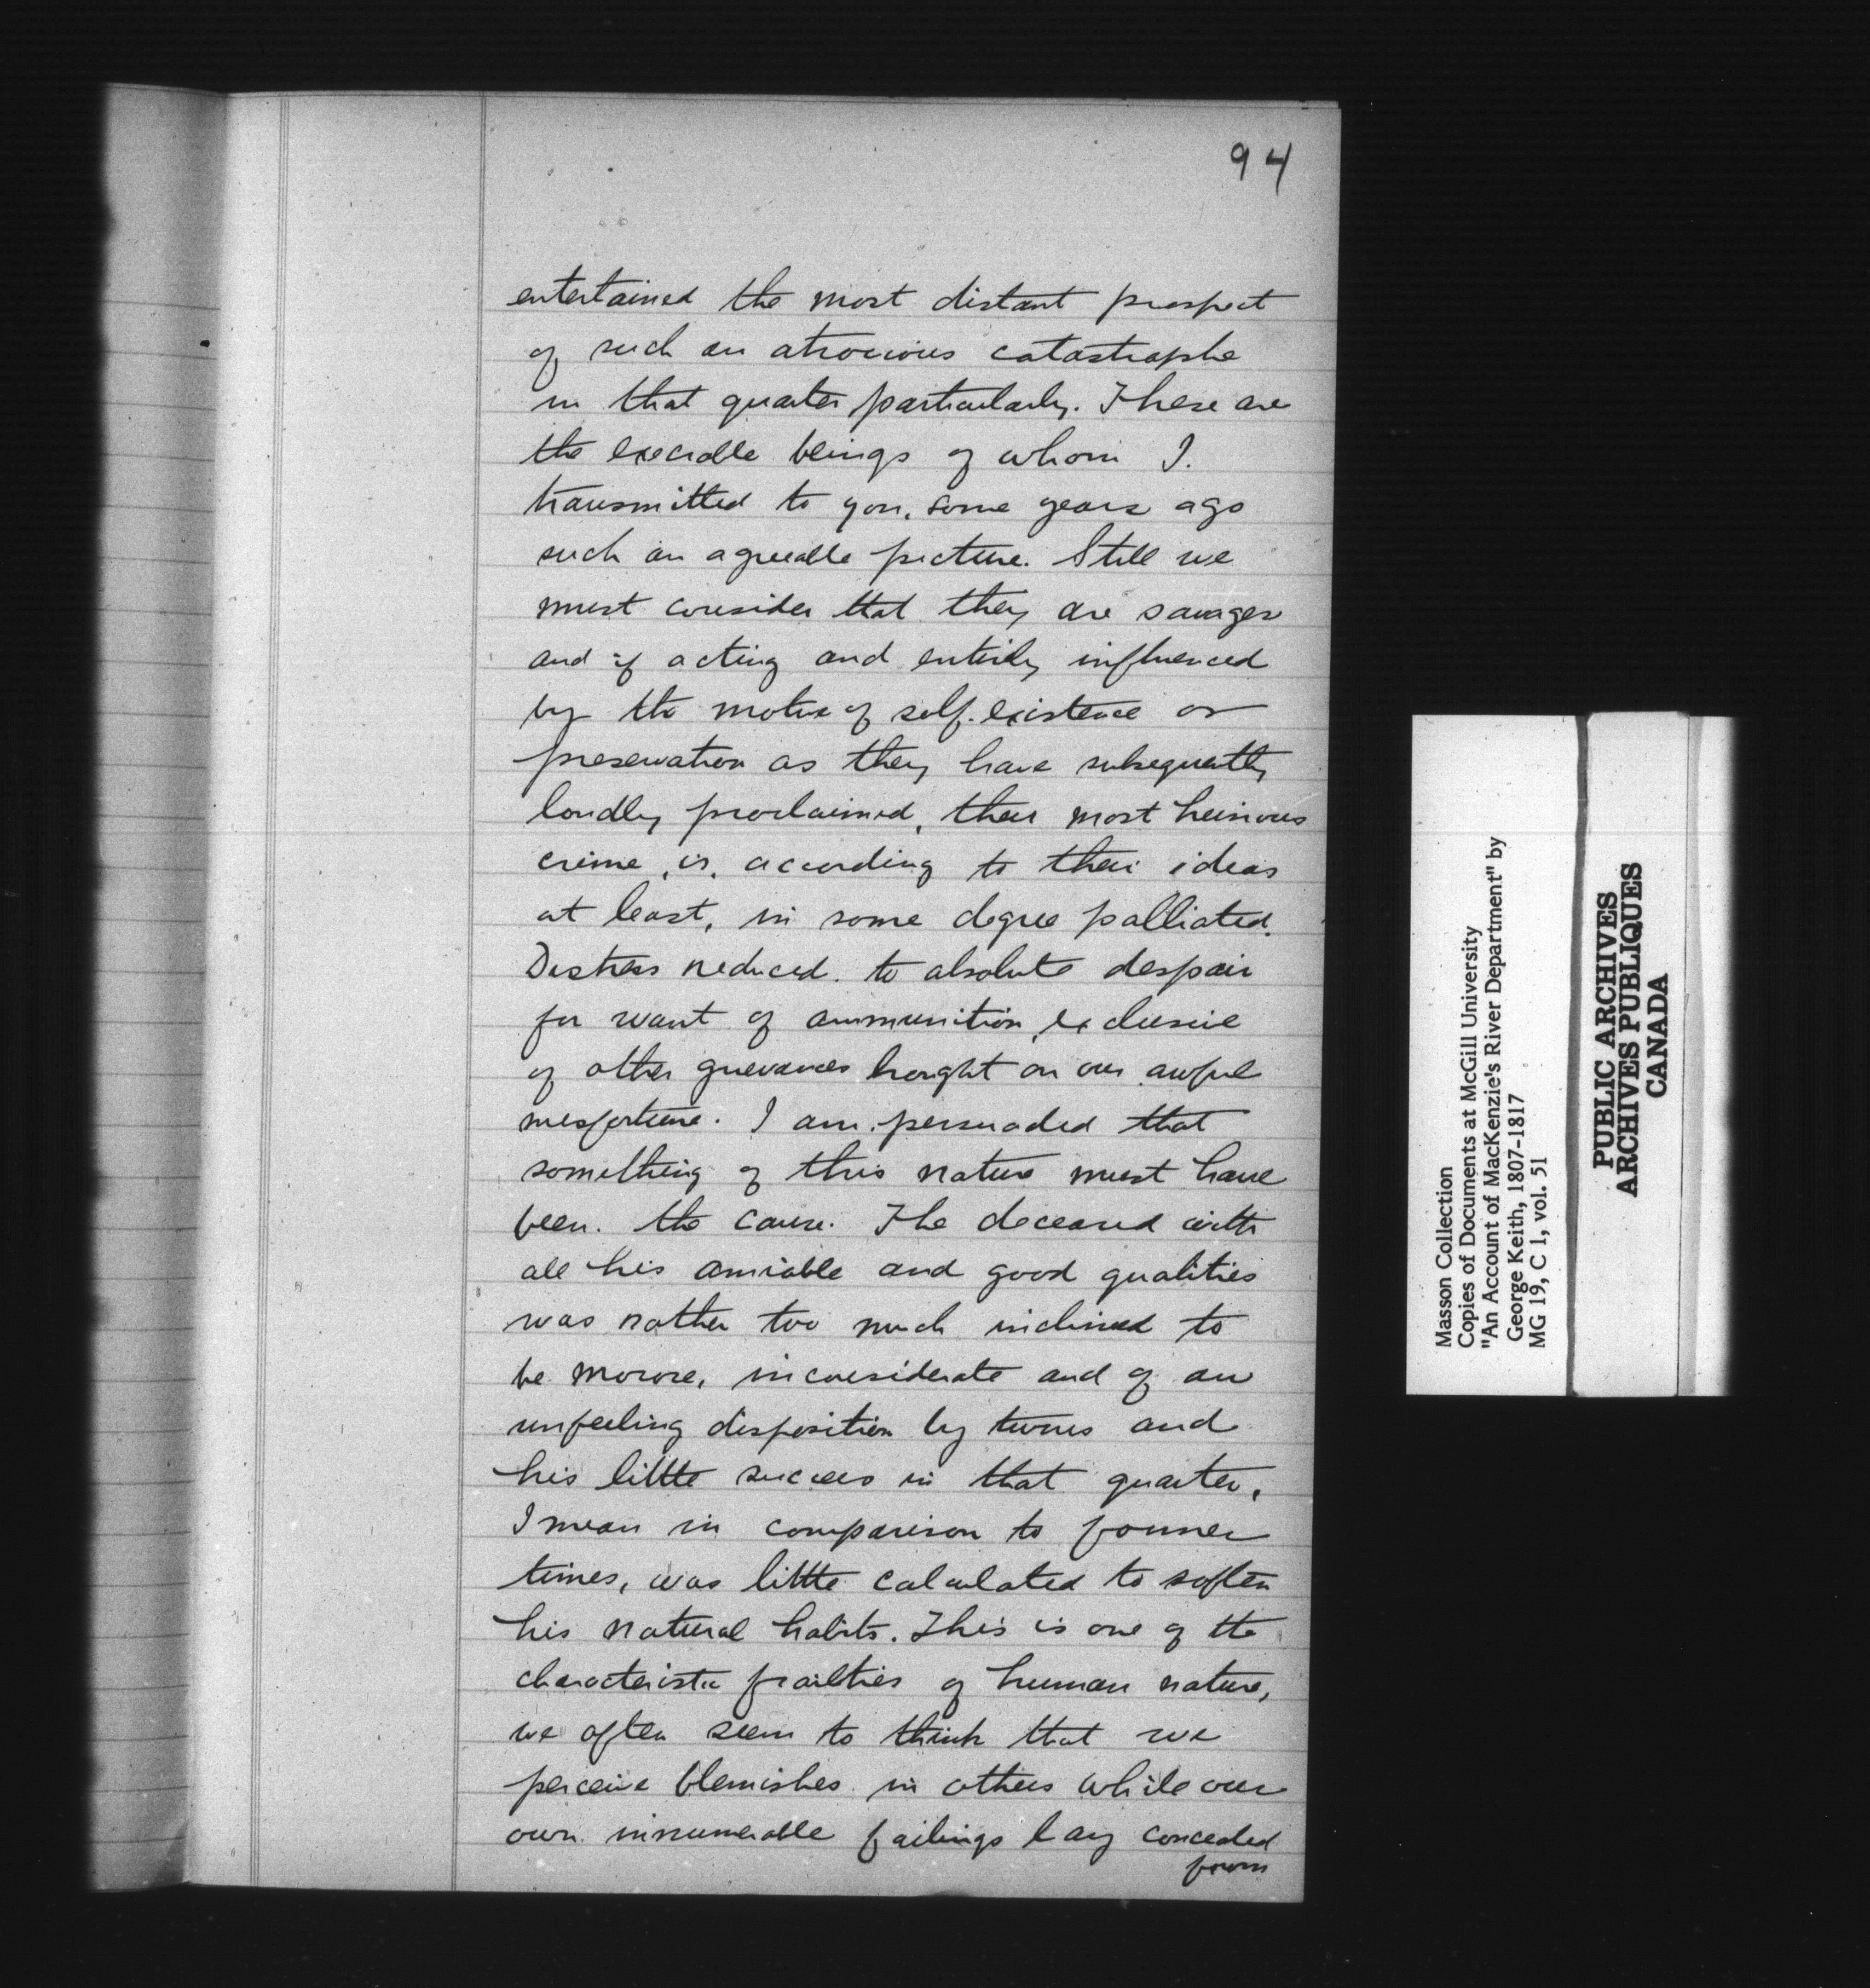 94
entertained the most distant prospect
of such an atrocious catastrophe
in that quarter particularly. These are
the execrable beings of whom I.
transmitted to you, some years ago
such an agreeable picture. Still we
must consider that they are savages
and if acting and entirely influenced
by the motive of self-existence or
preservation as they have subsequently
loudly proclaimed, their most heinous
crime, is, according to their ideas
at least, in some degree palliated.
Distress reduced. to absolute despair
for want of ammunition, exclusive
of other grievances brought on our awful
misfortune. I am persuaded that
something of this nature must have
been. the cause. The deceased with
all his amiable and good qualities
was rather too much inclined to
be morose, inconsiderate and of an
unfeeling disposition by turns and
his little success in that quarter,
I mean in comparison to former
times, was little calculated to soften
his natural habits. This is one of the
characteristic frailties of human nature,
we often seem to think that we
perceive blemishes in others while our
own innumerable failings lay concealed
from
Masson Collection
Copies of Documents at McGill University
"An Account of MacKenzie's River Department" by
George Keith, 1807-1817
MG 19, C 1, vol. 51
PUBLIC ARCHIVES
ARCHIVES PUBLIQUES
CANADA